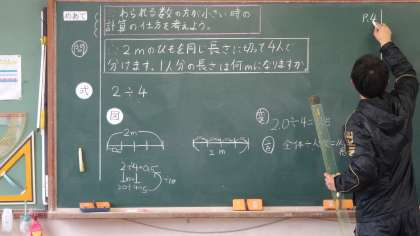 めあて
わられる数の方が小さい時の
計算の仕方を考えよう。
問
2mのひもを同じ長さに切って4人で
分けます。1人分の長さは何mになりますか。
式 2÷4
図
2m
2÷4=0.5
20÷4=5
2m
2.0÷4=0.5
全体÷人
P.4